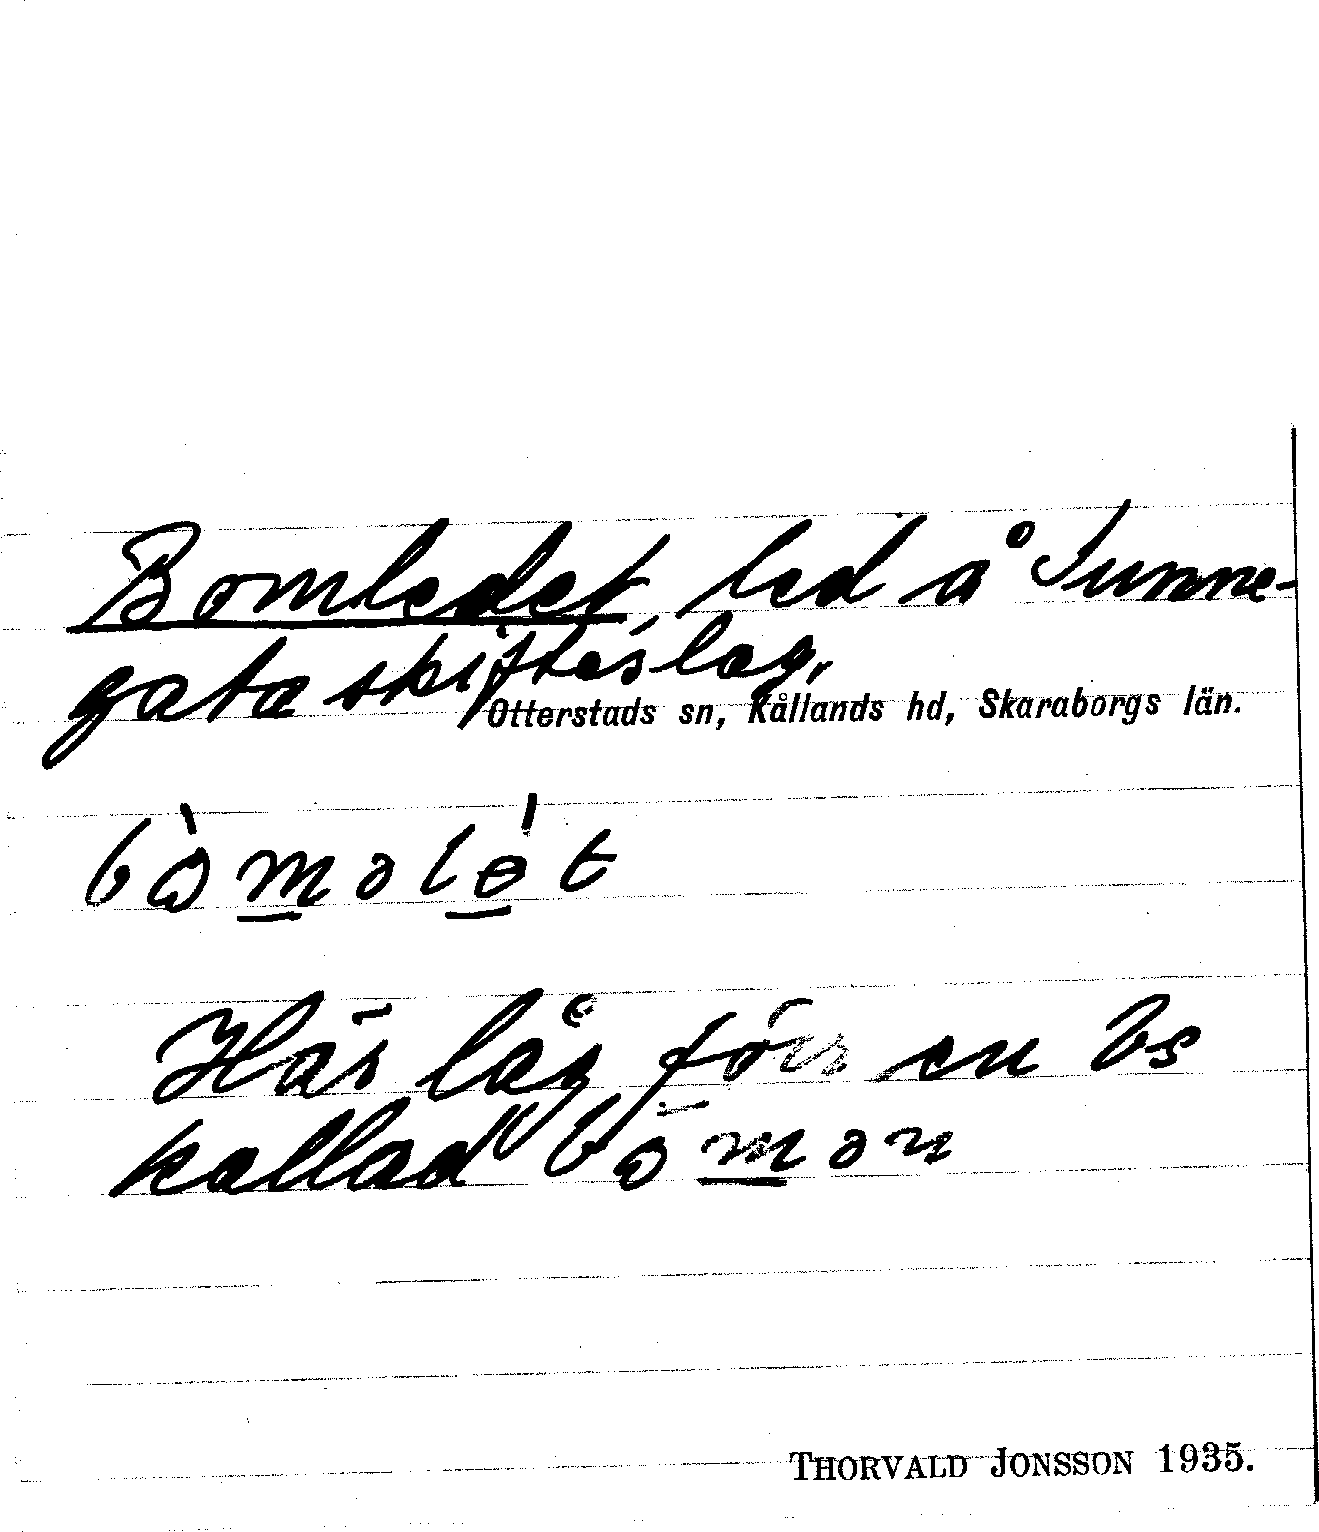 Bomledet, led å Sunne-
gata skifteslag,
Otterstads sn, Kållands hd, Skaraborgs län.
bòməlét
Här låg förr en bs
kallad bòmən
THORVALD JONSSON 1935.